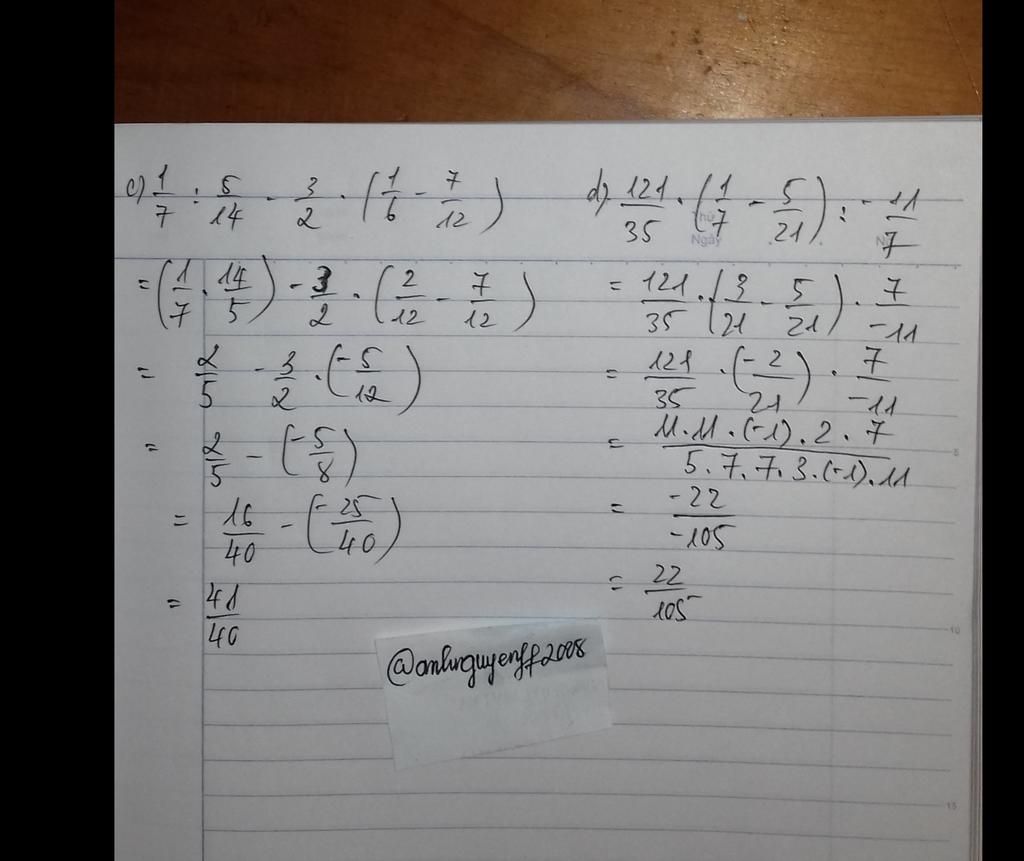 c) 1/7 : 5/14 - 3/2 . (1/6 - 7/12)
= (1/7 . 14/5) - 3/2 . (2/12 - 7/12)
= 2/5 - 3/2 . (-5/12)
= 2/5 - (-5/8)
= 16/40 - (-25/40)
= 41/40
d) 121/35 . (1/7 - 5/21) : -11/7
= 121/35 . (3/21 - 5/21) . 7/-11
= 121/35 . (-2/21) . 7/-11
= 11.11.(-1).2.7/5.7.7.3.(-1).11
= -22/-105
= 22/105
Thứ
Ngày
5
10
15
@anhnguyenff2008